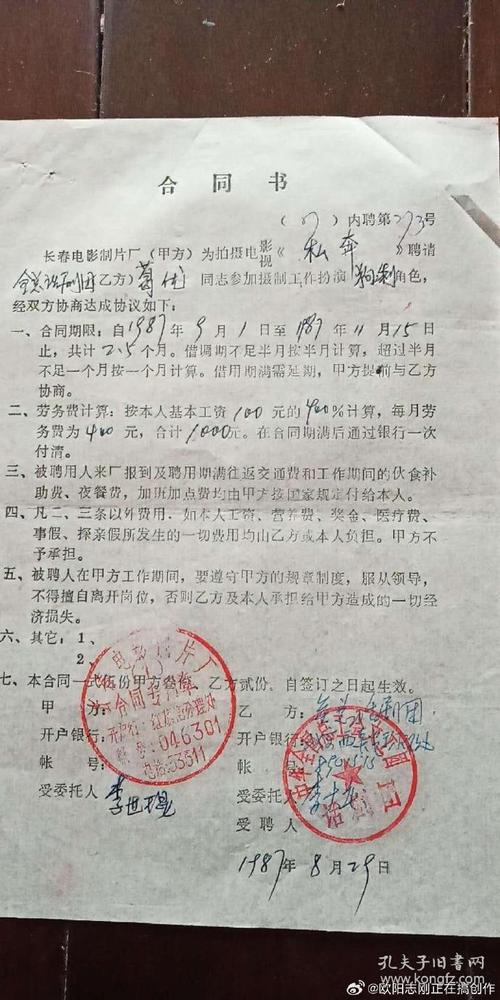 合同书
(87) 内聘第273号
长春电影制片厂(甲方)为拍摄电影视《私奔》聘请
全总话剧团(乙方)葛优同志参加摄制工作扮演 角色,
经双方协商达成协议如下:
一、合同期限:自1987年9月1日至1987年11月15日
止,共计2.5个月。借调期不足半月按半月计算,超过半月
不足一个月按一个月计算。借用期满需延期,甲方提前与乙方
协商。
二、劳务费计算:按本人基本工资100元的400%计算,每月劳
务费为400元,合计1000元。在合同期满后通过银行一次
付清。
三、被聘用人来厂报到及聘用期满往返交通费和工作期间的伙食补
助费、夜餐费,加班加点费均由甲方按国家规定付给本人。
四、凡二、三条以外费用,如本人工资、营养费、奖金、医疗费、
事假、探亲假所发生的一切费用均由乙方或本人负担。甲方不
予承担。
五、被聘人在甲方工作期间,要遵守甲方的规章制度,服从领导,
不得擅自离开岗位,否则乙方及本人承担给甲方造成的一切经
济损失。
六、其它:1、
2、
七、本合同一式伍份甲方叁份,乙方贰份,自签订之日起生效。
甲方:
乙方:全总话剧团
开户银行:
开户银行:
帐号:
帐号:
受委托人 李世
受委托人 李
受聘人
电影制片厂
合同专用章
开户行:红旗街办理处
帐号:046301
电话:53311
话剧团
1987年8月29日
孔夫子旧书网
@欧阳志刚正在搞创作